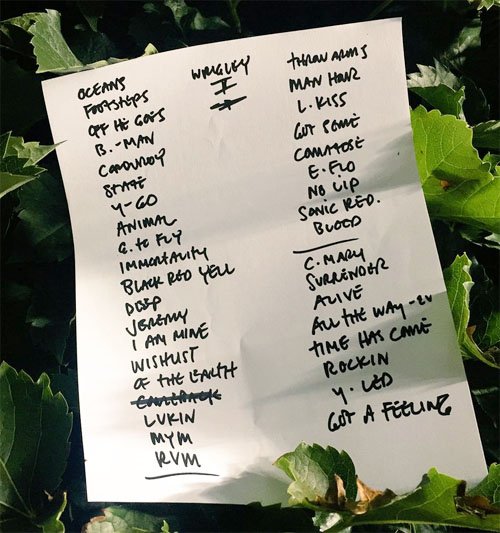 WRIGLEY
I
OCEANS
FOOTSTEPS
OFF HE GOES
B.-MAN
CORDUROY
STATE
Y-GO
ANIMAL
G. TO FLY
IMMORTALITY
BLACK RED YELL
DEEP
JEREMY
I AM MINE
WISHLIST
OF THE EARTH
COMEBACK
LUKIN
MYM
RVM
THROW ARMS
MAN HOUR
L. KISS
GOT SOME
COMATOSE
E. FLO
NO LIP
SONIC RED.
BLOOD
C. MARY
SURRENDER
ALIVE
ALL THE WAY - EV
TIME HAS CAME
ROCKIN
Y. LED
GOT A FEELING